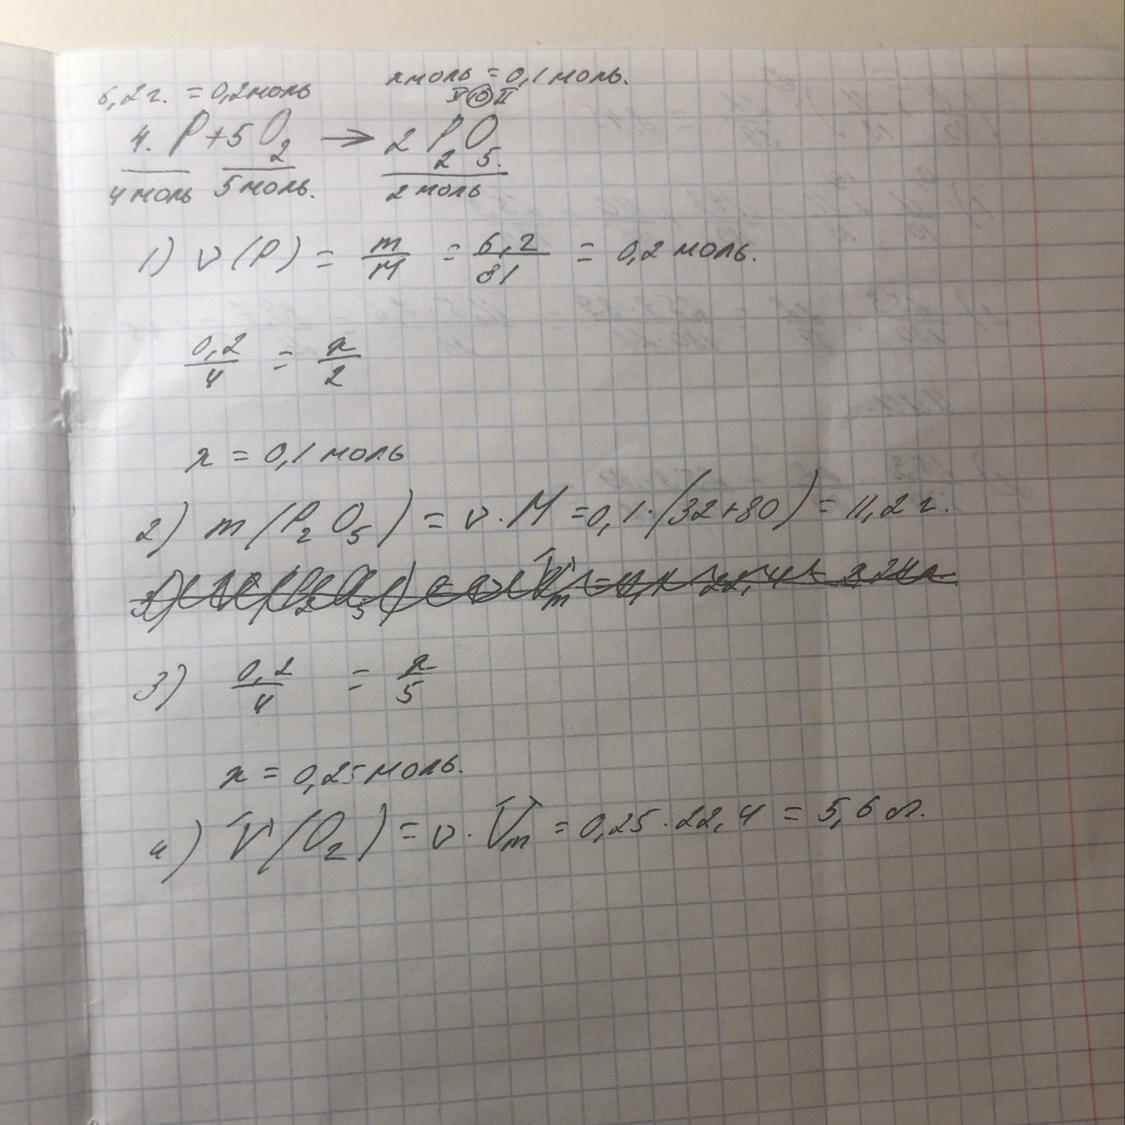 6,2г. = 0,2моль xмоль = 0,1моль.
V 10 II
4 · P + 5O2 → 2P2O5.
4моль 5моль. 2моль
1) ν(P) = m/M = 6,2/31 = 0,2 моль.
0,2/4 = x/2
x = 0,1 моль
2) m(P2O5) = ν · M = 0,1 · (32+80) = 11,2г.
3) 0,2/4 = x/5
x = 0,25моль.
4) V(O2) = ν · Vm = 0,25 · 22,4 = 5,6 л.